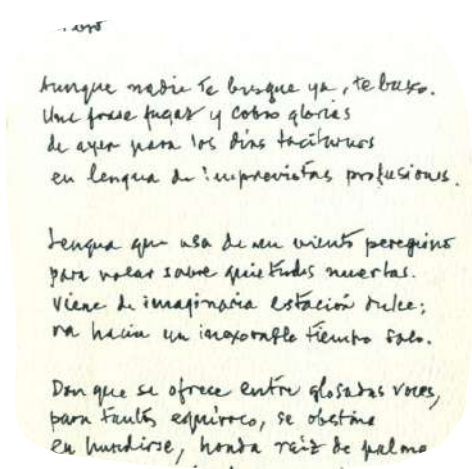 Aunque nadie te busque ya, te busco.
Una frase fugaz y cobro glorias
de ayer para los días taciturnos
en lengua de imprevistas profusiones.
Lengua que usa de un viento peregrino
para volar sobre quietudes muertas.
Viene de imaginaria estación dulce;
va hacia un inexorable tiempo solo.
Don que se ofrece entre glosadas voces,
para tantos equívoco, se obstina
en hundirse, honda raíz de palma